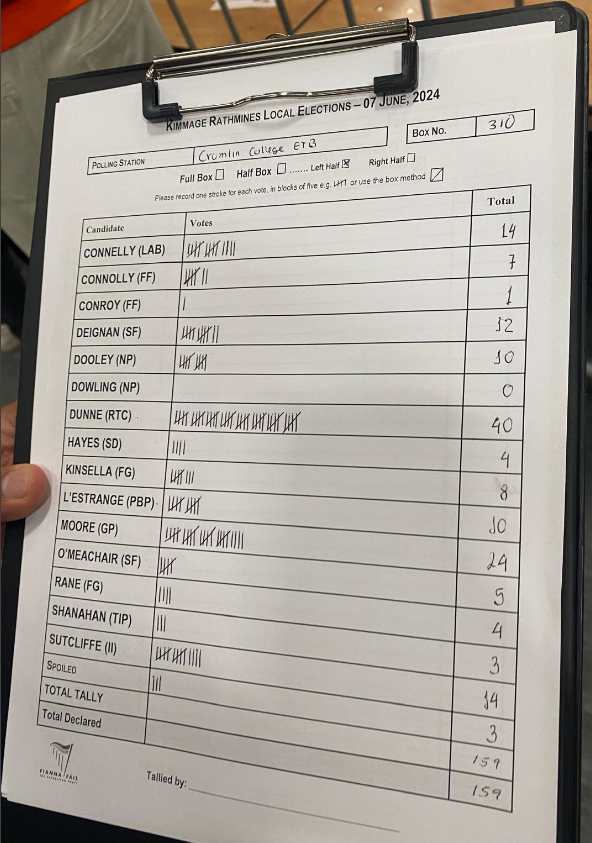 KIMMAGE RATHMINES LOCAL ELECTIONS – 07 JUNE, 2024
POLLING STATION Crumlin College ETB Box No. 310
Full Box Half Box ....... Left Half Right Half
Please record one stroke for each vote, in blocks of five e.g. or use the box method
Candidate Votes Total
CONNELLY (LAB) 14
CONNOLLY (FF) 7
CONROY (FF) 1
DEIGNAN (SF) 12
DOOLEY (NP) 10
DOWLING (NP) 0
DUNNE (RTC) 40
HAYES (SD) 4
KINSELLA (FG) 8
L'ESTRANGE (PBP) 10
MOORE (GP) 24
O'MEACHAIR (SF) 5
RANE (FG) 4
SHANAHAN (TIP) 3
SUTCLIFFE (II) 14
SPOILED 3
TOTAL TALLY 159
Total Declared 159
FIANNA FÁIL
Tallied by: